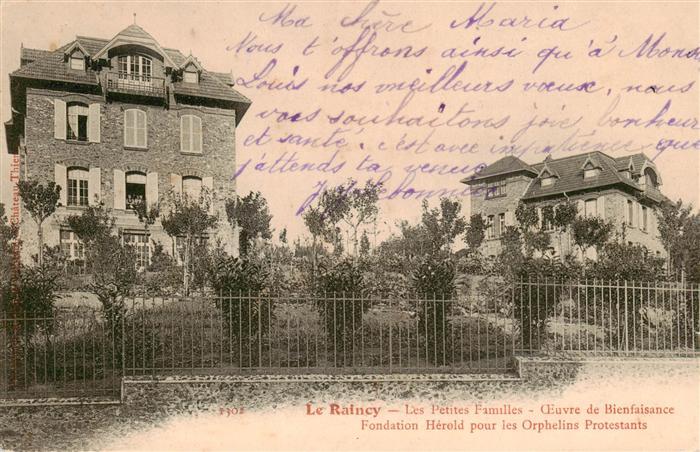 Ma chère Maria
Nous t'offrons ainsi qu'à Mons
Louis nos meilleurs vœux, nous
vous souhaitons joie bonheur
et santé. c'est avec impatience que
j'attends ta venue
1302
Le Raincy – Les Petites Familles - Œuvre de Bienfaisance
Fondation Hérold pour les Orphelins Protestants